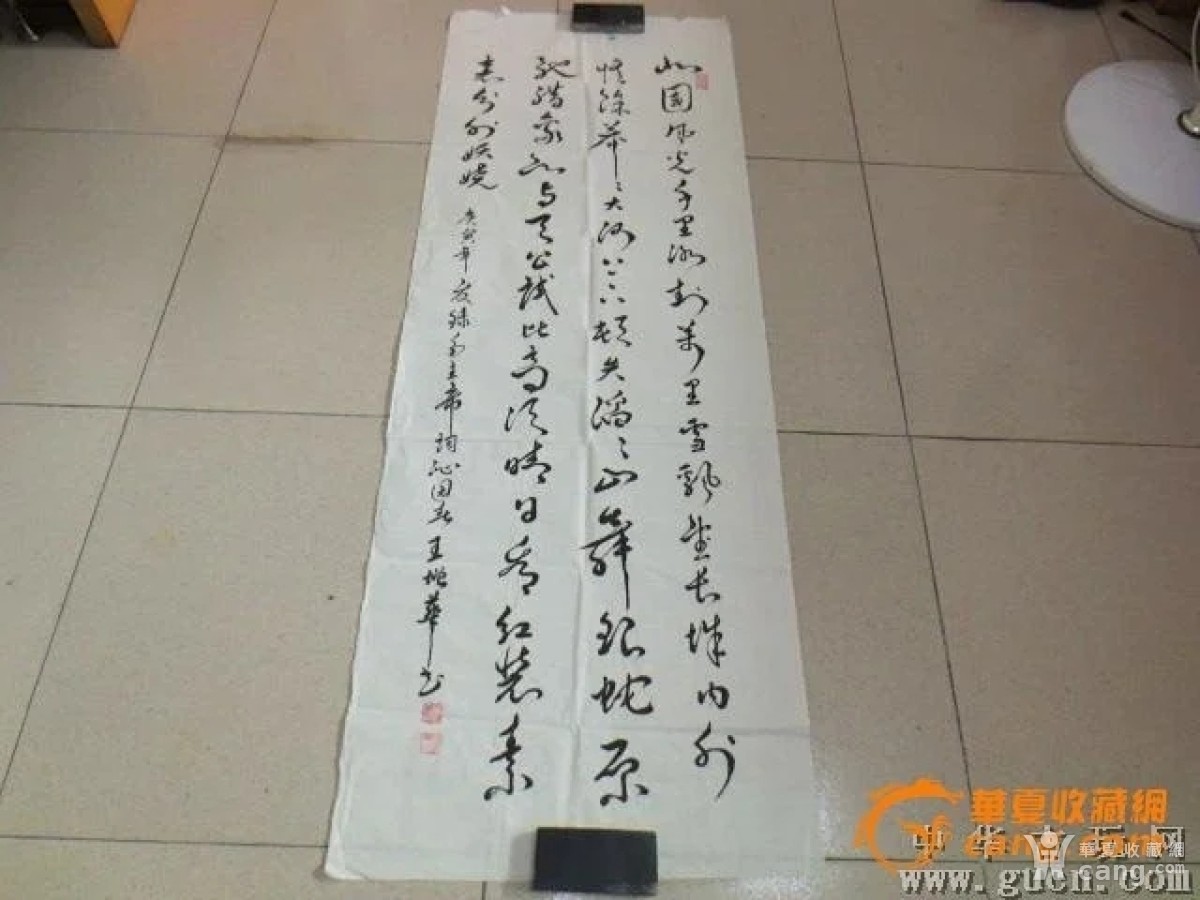 北国风光千里冰封万里雪飘望长城内外
惟馀莽々大河上下顿失滔々山舞银蛇原
驰蜡象欲与天公试比高须晴日看红装素
裹分外妖娆
庚寅年夏录毛主席词沁园春王增华书
華夏收藏網
cang.com
華夏收藏網
cang.com
www.gucn.com